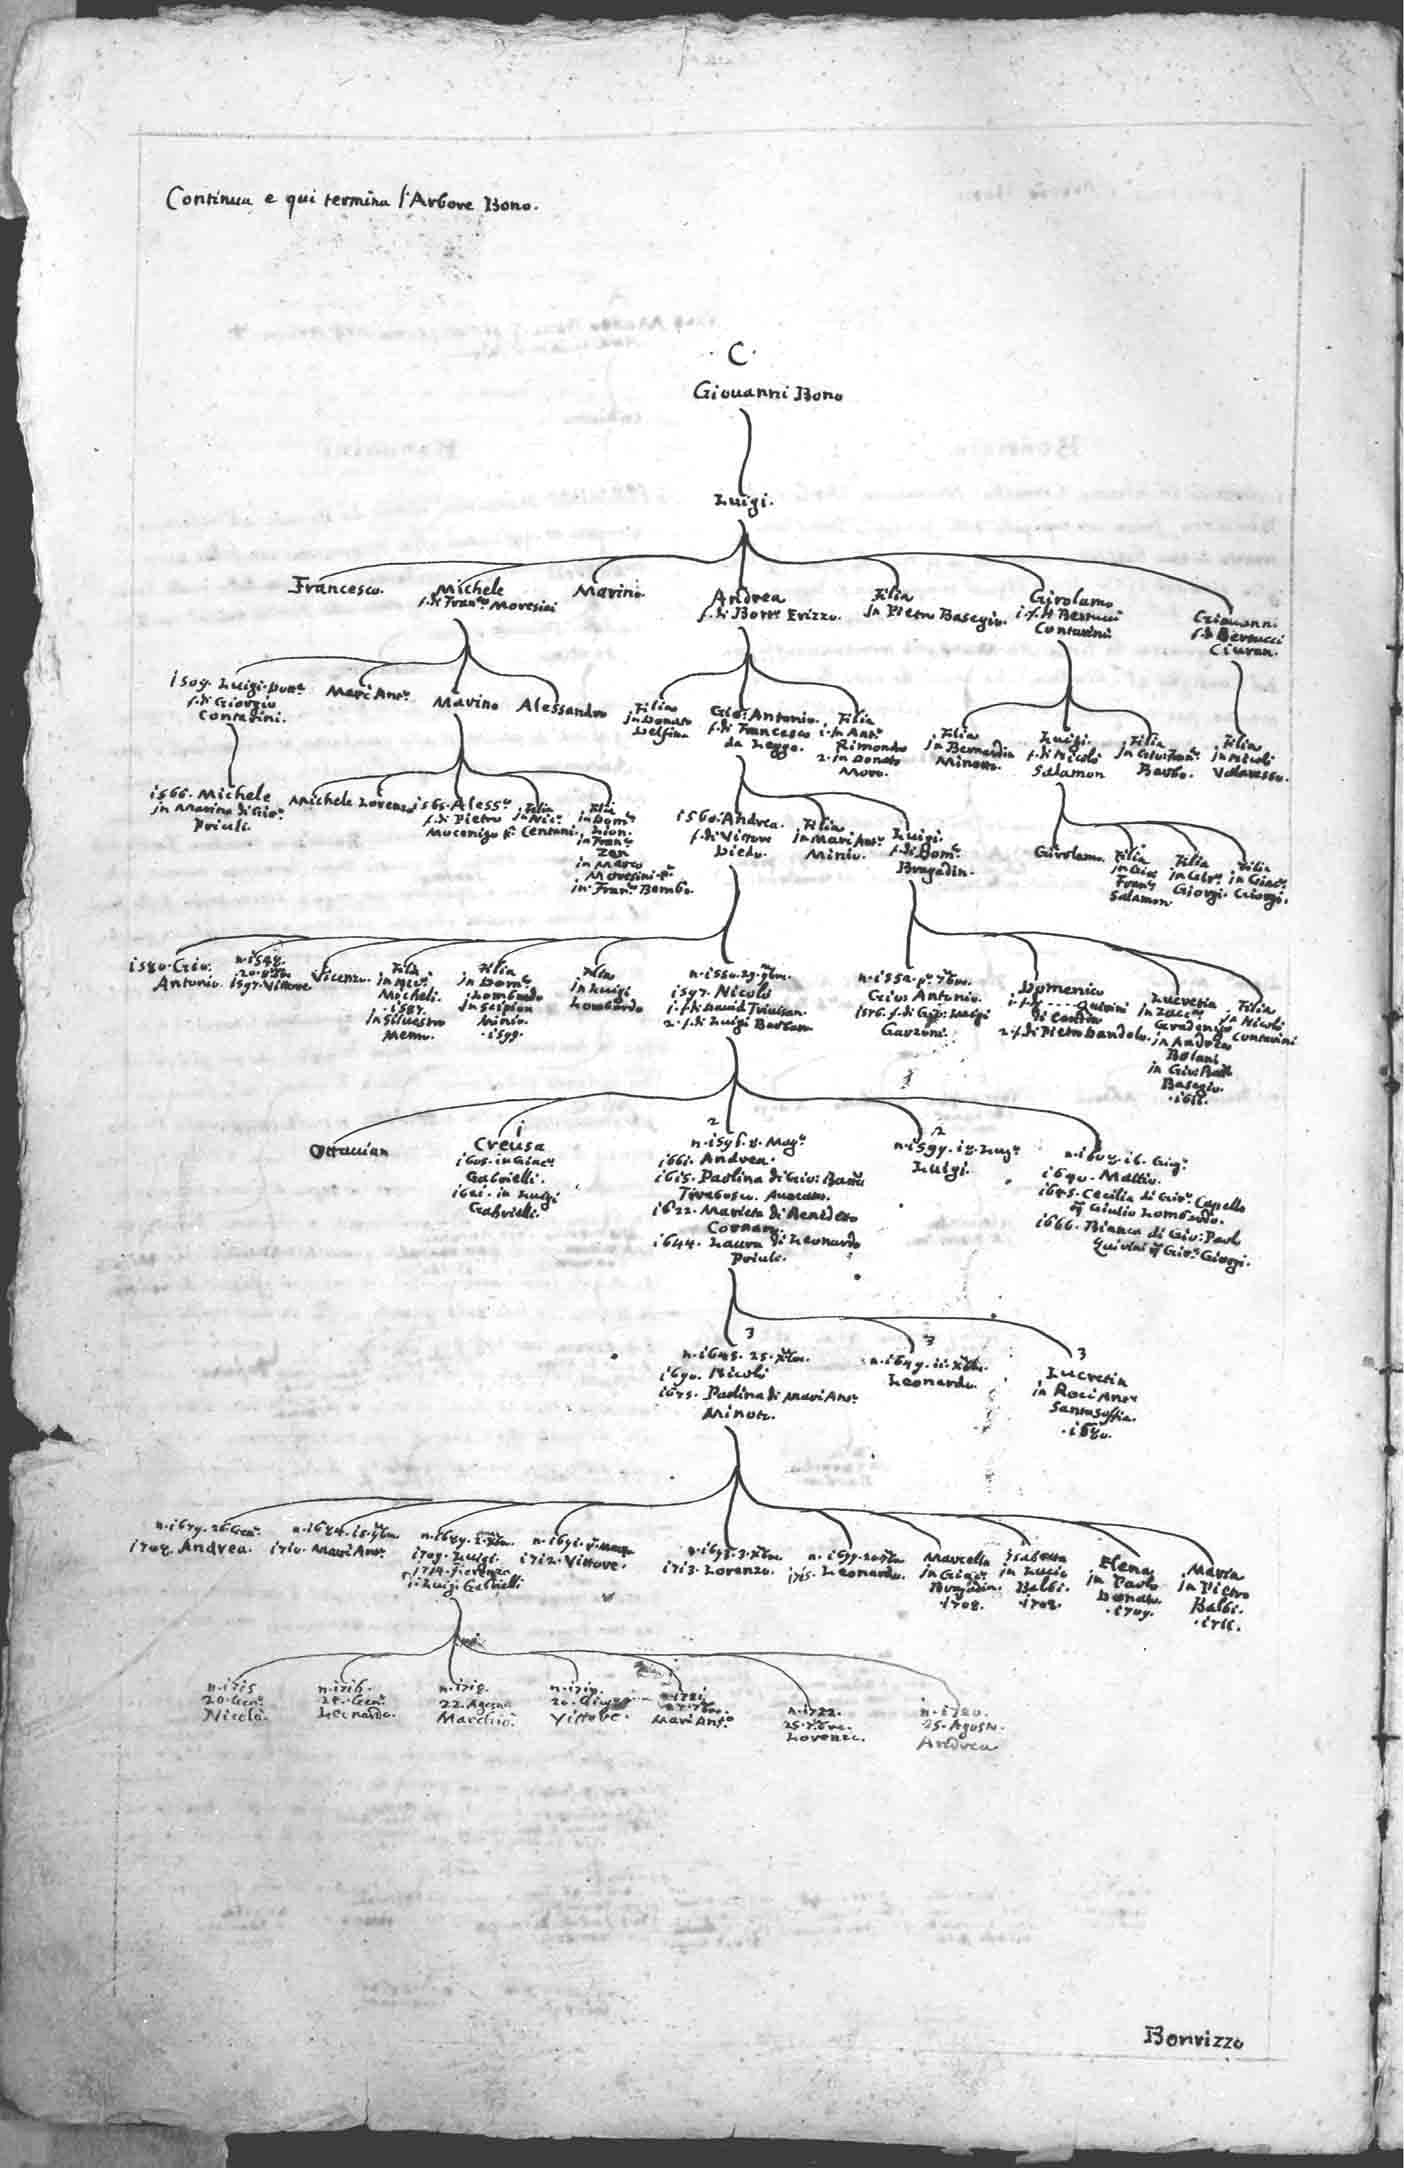 Continua e qui termina l'Arbore Bono.
·C·
Giouanni Bono
Luigi.
Francesco.
Michele
f. di Franco Moresini
Marino.
Andrea
f. di Borto Erizzo.
Filia
in Pietro Basegio.
Girolamo
i. f. di Bertucci
Contarini
Giouanni
f. di Bertucci
Ciuran.
1509. Luigi
f. di Giorgio
Contarini.
Marc Anto
Marino
Alessandro
Filia
in Donato
Delfino
Gio: Antonio.
f. di Francesco
da Lezze.
Filia
i. in Anto
Rimondo
2. in Donato
Moro.
Filia
in Bernardin
Minotto.
Luigi.
f. di Nicolò
Salamon
Filia
Barbo.
Filia
in Nicolò
Valaresso.
1566. Michele
in Marina di Gio:
Priuli.
Michele
Lorenzo
1565. Alesso
f. di Pietro
Mocenigo
Filia
in Nico
Centani.
Filia
in Domo
Lion.
in Franco
Zen
in Marco
Moresini
in Franco Bembo.
1560. Andrea.
f. di Vittore
Diedo.
Filia
in Marc Anto
Minio.
Luigi.
f. di Domo
Bragadin.
Girolamo.
Filia
in Gio:
Franco
Salamon
Filia
in Giro
Giorgi.
Filia
in Giaco
Giorgi.
1580. Gio:
Antonio.
n. 1548.
1597. Vittore
Vicenzo.
Filia
in Alvi
Michiel.
· 1587.
in Siluestro
Memo.
Filia
in Domo
Lombardo
in Scipion
Minio.
· 1599.
Filia
in Luigi
Lombardo
n. 1550. 29. 9bre.
1597. Nicolò
i. f. di David Triuisan.
2. f. di Luigi Barbaro
n. 1552. po 7bre.
Gio: Antonio.
1576. f. di Gio: Luigi
Garzoni.
Domenico
i. f. di ---- Quirini
di Candia
2. f. di Pietro Dandolo.
Lucretia
in Zacca
Gradenigo
in Andrea
Bolani
in Gio: Batta
Basegio.
Filia
in Nicolò
Contarini
Ottauian
1
Creusa
1605. in Giaco
Gabrielli.
1621. in Luigi
Gabrielli.
2
n. 1596. 8. Mago
1661. Andrea.
1615. Paolina di Gio: Batta
Tirabosco.
1622. Marieta di Benedetto
Cornaro.
1644. Laura di Leonardo
Priuli.
2
n. 1599. 18. Lugo
Luigi.
n. 1602. 16. Giug.
1690. Mattio.
1645. Cecilia di Giro Capello
Giulio Lombardo.
1666. Bianca di Gio: Paolo
Quirini Giro Giorgi.
3
n. 1645. 25. Xbre.
1690. Nicolò
1675. Paolina di Marc Anto
Minoto.
3
n. 1649. 11. Xbre.
Leonardo.
3
Lucretia
in Roc Anto
Santa Soffia.
· 1680.
n. 1679. 26. Geno
1702. Andrea.
n. 1684. 15. 9bre.
1710. Marc Anto
n. 1689. 2. Xbre.
1709. Luigi.
1714. Fiorenza
di Luigi Gabrielli
n. 1691. Marzo
1712. Vittore.
n. 1693. 3. Xbre.
1713. Lorenzo.
n. 1697.
1715. Leonardo.
Marcella
in Giaco
Bragadin.
· 1702.
Isabetta
in Lucio
Balbi.
· 1702.
Elena
in Paolo
Donado.
· 1709.
Maria
in Pietro
Balbi.
· 1711.
n. 1715
20. Geno
Nicolò.
n. 1716.
Geno
Leonardo.
n. 1718.
22. Agosto
Marchiò.
n. 1719.
20. Giugo
Vittore.
n. 1721.
Marc Anto
n. 1722.
25. 7bre.
Lorenzo.
n. 1720.
25. Agosto.
Andrea
Bonrizzo